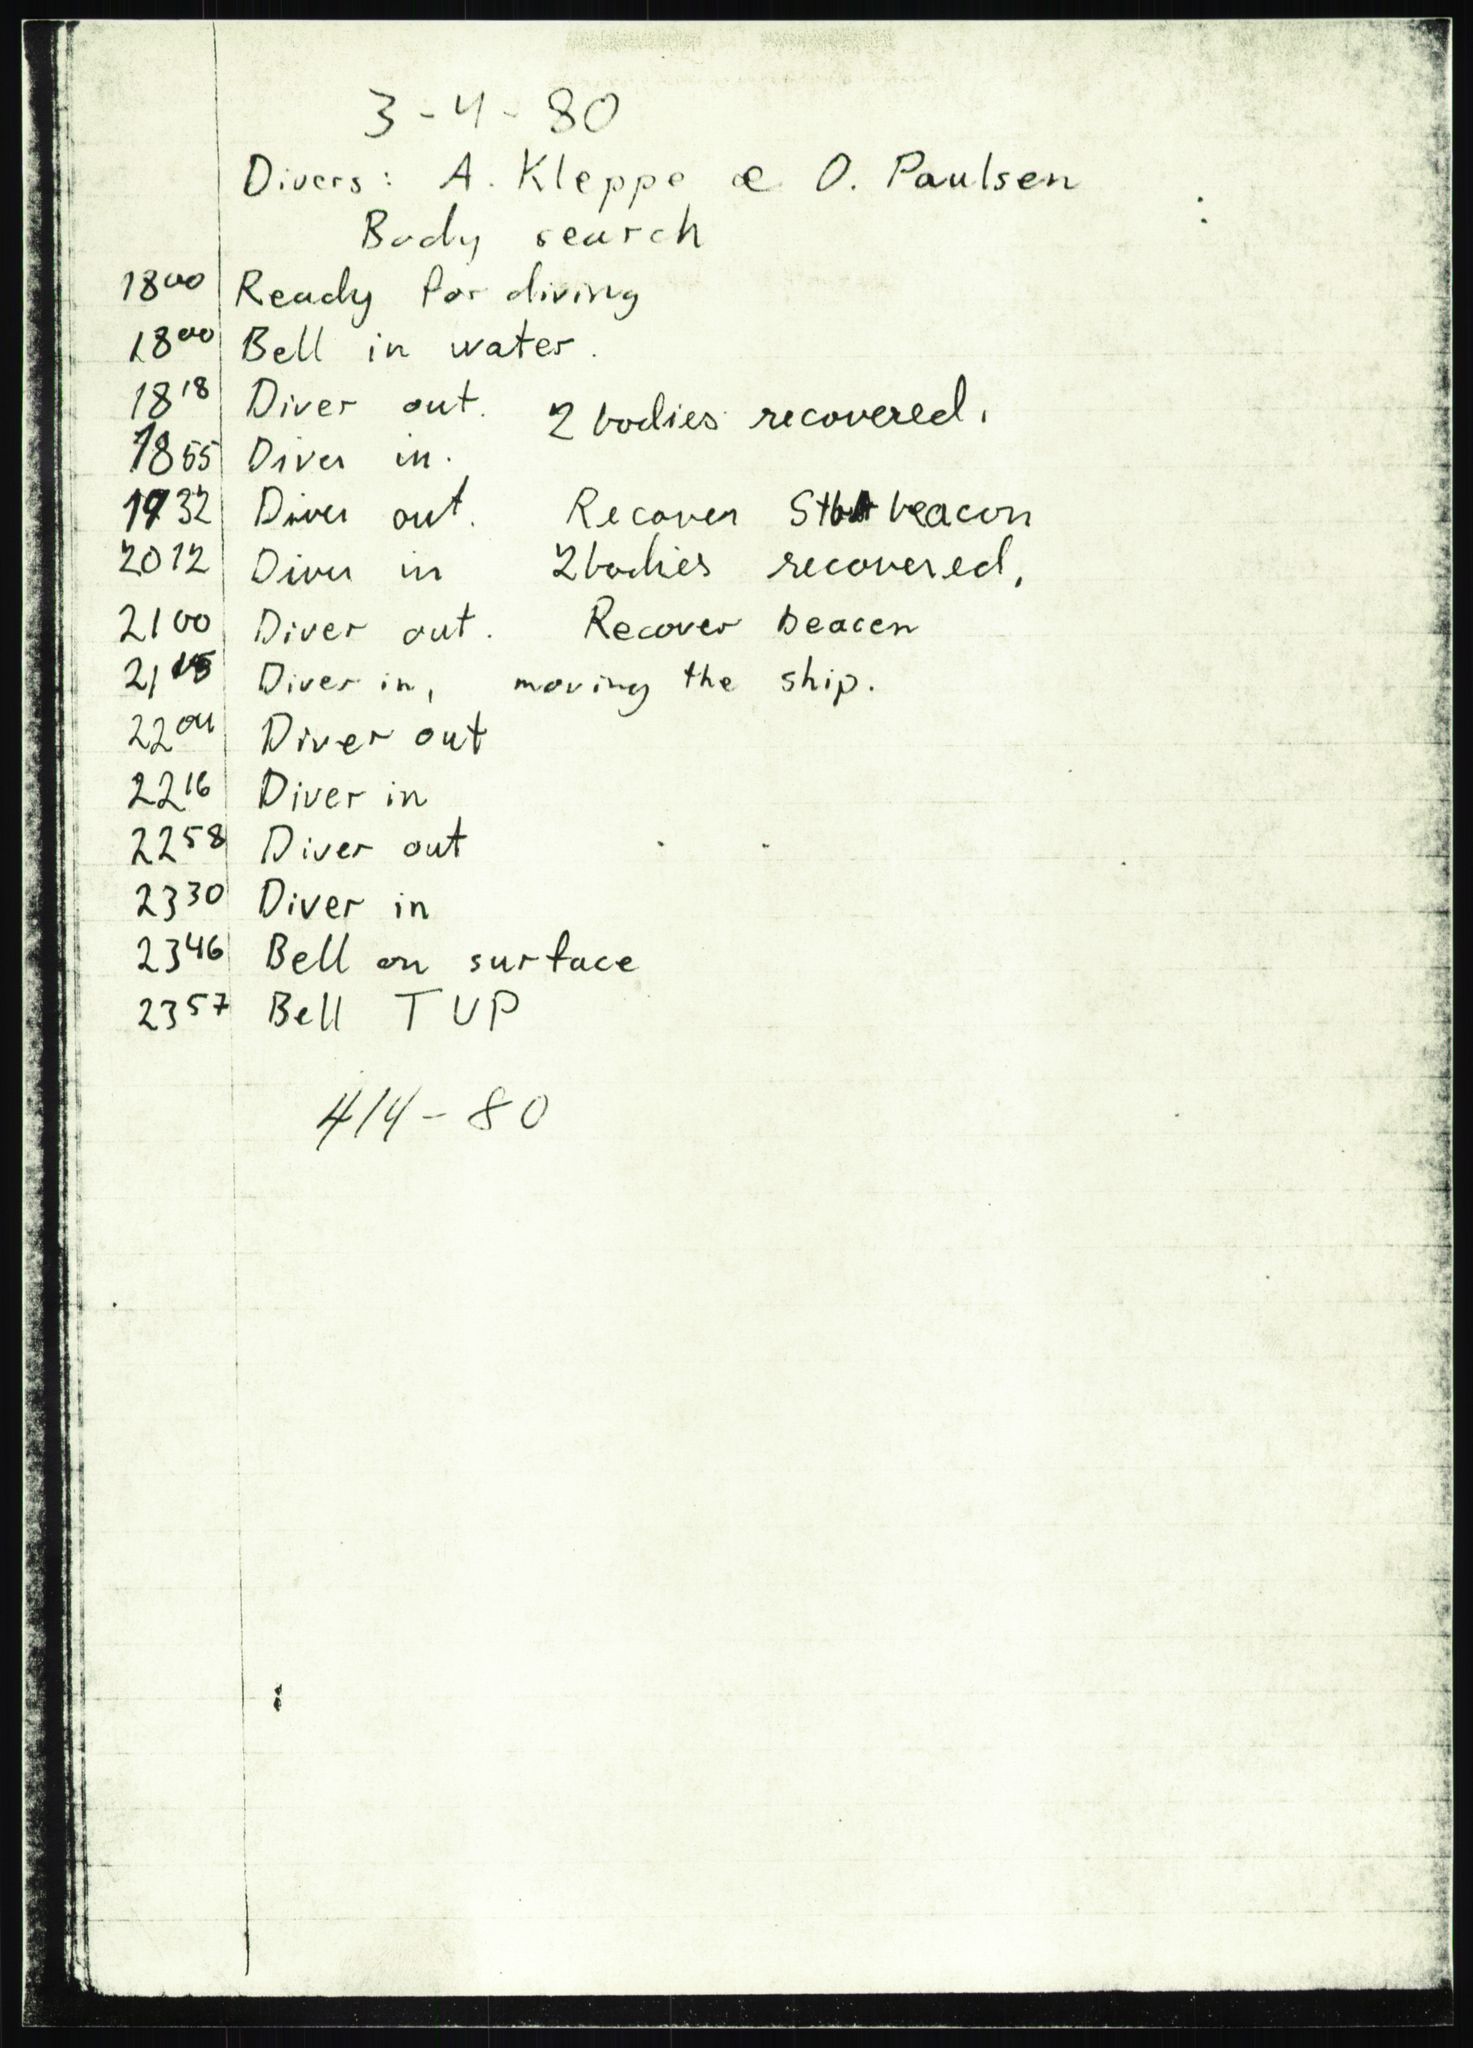 3-4-80
Divers: A. Kleppe & O. Paulsen
Body search
18 00 Ready for diving
18 00 Bell in water.
18 18 Diver out. 2 bodies recovered.
18 55 Diver in.
19 32 Diver out. Recover beacon
20 12 Diver in 2 bodies recovered,
21 00 Diver out. Recover beacon
Diver in, moving the ship.
22 04 Diver out
22 16 Diver in
22 58 Diver out
23 30 Diver in
23 46 Bell on surface
23 57 Bell TUP
4/4-80